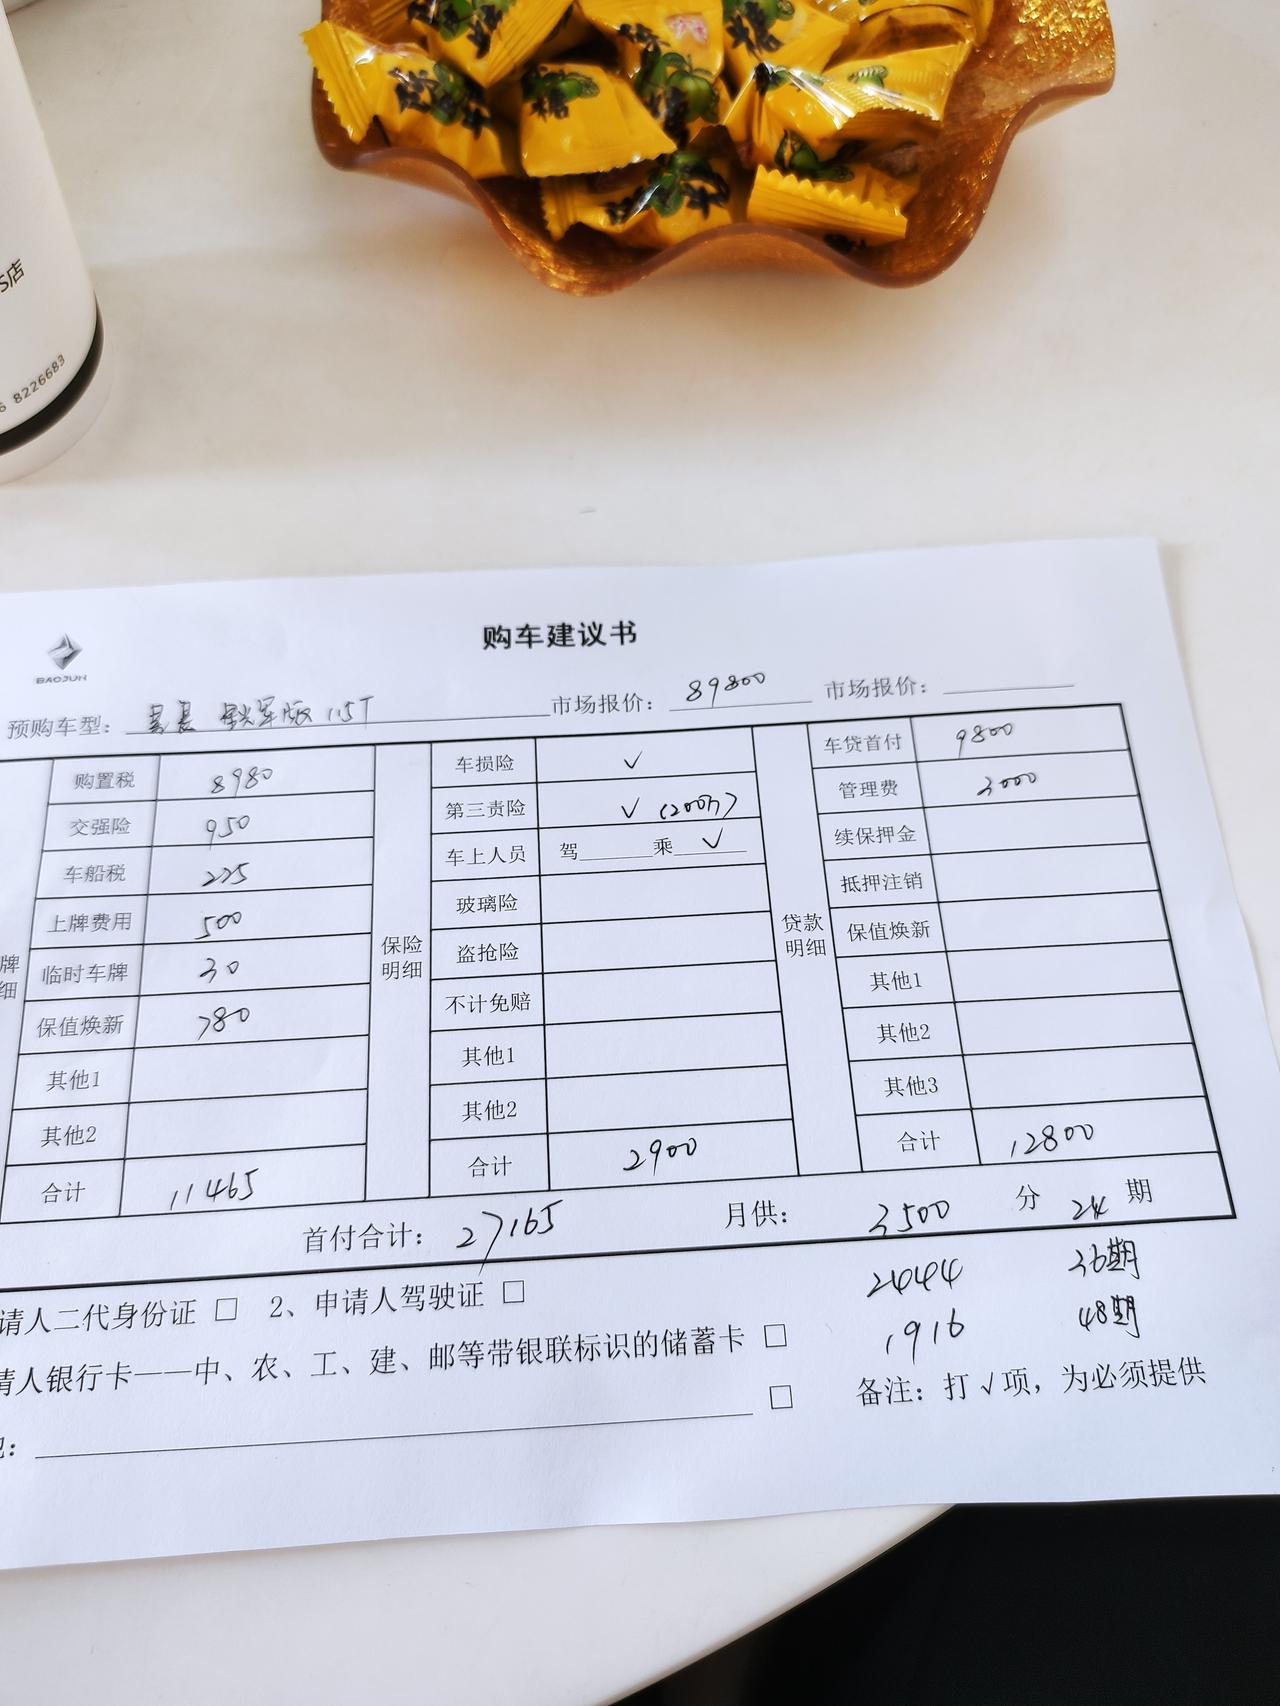 S店
6 8226683
BAOJUN
购车建议书
预购车型： 星辰 星光军版 1.5T 市场报价： 89800 市场报价：
购置税 8980 车损险 √ 车贷首付 9800
交强险 950 第三责险 √ (200万) 管理费 3000
车船税 225 车上人员 驾 乘 √ 续保押金
上牌费用 500 玻璃险 抵押注销
牌 临时车牌 30 保险 盗抢险 贷款 保值焕新
细 保值焕新 780 明细 不计免赔 明细 其他1
其他1 其他1 其他2
其他2 其他2 其他3
合计 11465 合计 2900 合计 12800
首付合计： 27165 月供： 3500 分 24 期
2444 36期
1916 48期
请人二代身份证 □ 2、申请人驾驶证 □
请人银行卡——中、农、工、建、邮等带银联标识的储蓄卡 □
□ 备注：打√项，为必须提供